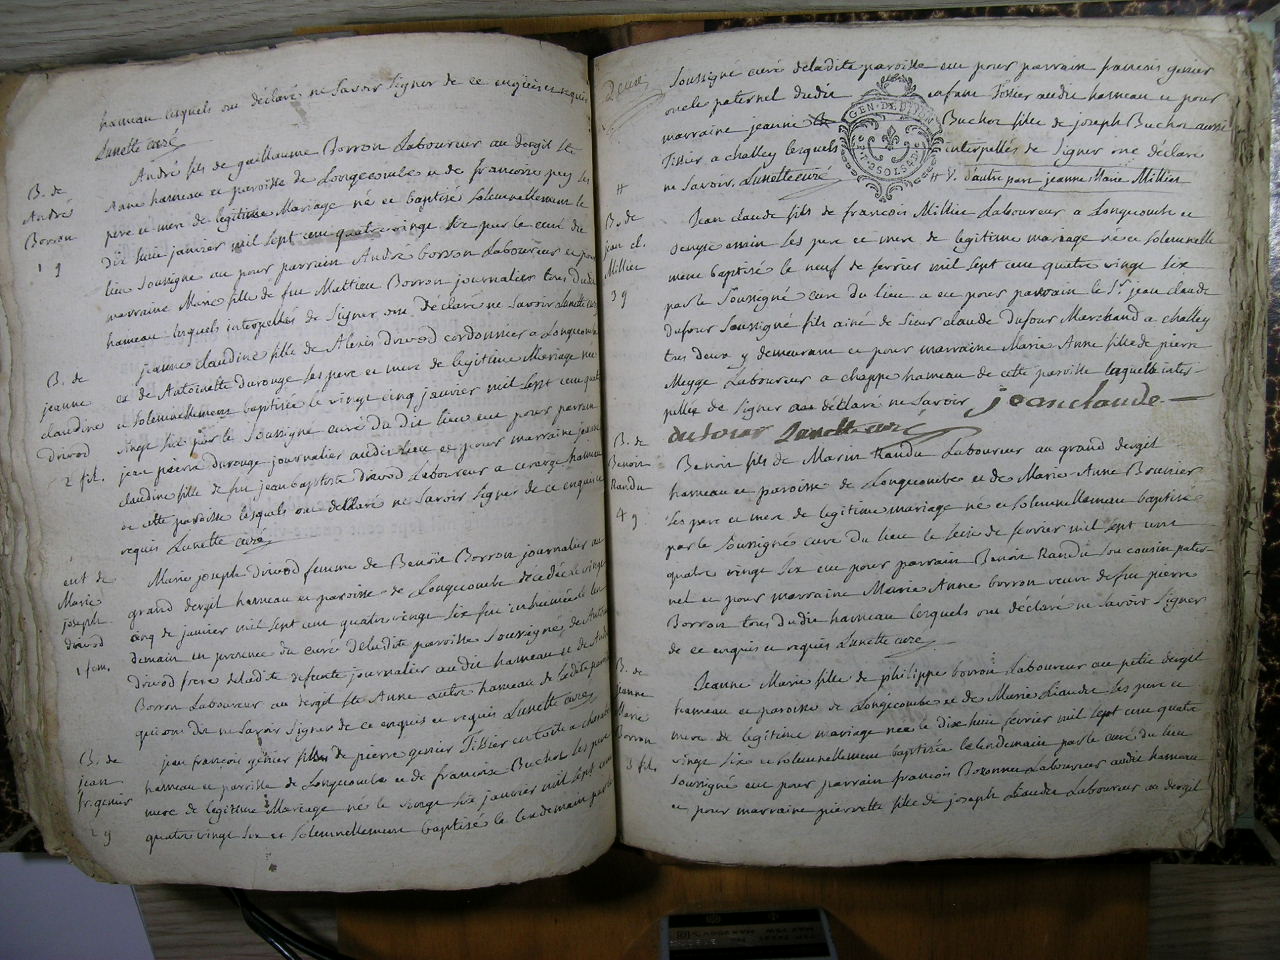 hameau lesquels ont déclaré ne savoir signer de ce enquis et requis
Lunette curé
B. de
André
Borron
1 g
André fils de guillaume Borron Laboureur au dergit ste
Anne hameau et paroisse de Longecombe et de francoise pey ses
pere et mere de legitime Mariage né et baptisé solemnellement le
dix huit janvier mil sept cent quatre vingt six par le curé du
lieu soussigné ou pour parrain André borron Laboureur et pour
marraine Marie fille de feu Mathieu Borron journalier tous dudit
hameau lesquels interpellés de signer ont déclaré ne savoir Lunette curé
B. de
jeanne
claudine
drivod
2 fil.
jeanne claudine fille de Alexis drivod cordonnier a Longecombe
et de Antoinette durouge ses pere et mere de legitime Mariage née
et solemnellement baptisée le vingt cinq janvier mil sept cent quatre
vingt six par le soussigné curé du dit lieu eut pour parrain
jean pierre durouge journalier audit lieu et pour marraine jeanne
claudine fille de feu jean baptiste drivod Laboureur a hameau
de cette paroisse lesquels ont déclaré ne savoir signer de ce enquis et
requis Lunette curé
ent de
Marie
joseph
drivod
1 fem.
Marie joseph drivod femme de Benoît Borron journalier au
grand dergit hameau et paroisse de Longecombe décedée le vingt
cinq de janvier mil sept cent quatre vingt six fut inhumée le len
demain en presence du curé deladite paroisse soussigné, de Antoine
drivod frere deladite defunte journalier audit hameau et de André
Borron Laboureur au dergit ste Anne autre hameau de ladite paroisse
qui ont dit ne savoir signer de ce enquis et requis Lunette curé
B. de
jean
fr. genier
2 g
jean françois génier fils de pierre genier Tissier en toile a
hameau et paroisse de Longecombe et de francoise Buchot ses pere
mere de legitime Mariage né le vingt six janvier mil sept cent
quatre vingt six et solemnellement baptisé le lendemain par le
Deux
soussigné curé deladite paroisse eut pour parrain francois genier
oncle paternel dudit enfant Tissier audit hameau et pour
marraine jeanne Buchot fille de joseph Buchot aussi
Tissier a challey lesquels interpellés de signer ont déclaré
ne savoir. Lunette curé # V. d'autre part jeanne Marie Millier
GEN. DE DIJON
#
B. de
jean cl.
Millier
3 g
Jean claude fils de francois Millier Laboureur a Longecombe et
ses pere et mere de legitime mariage né et solemnelle
ment baptisé le neuf de fevrier mil sept cent quatre vingt six
par le soussigné curé du lieu a eu pour parrain le Sr. jean claude
dufour soussigné fils ainé de sieur claude dufour Marchand a challey
tous deux y demeurant et pour marraine Marie Anne fille de pierre
Meyge Laboureur a chappe hameau de cette paroisse laquelle inter-
pellée de signer a déclaré ne savoir jean claude
dufour Lunette curé
B. de
Benoit
Randu
4 g
Benoit fils de Marin Randu Laboureur au grand dergit
hameau et paroisse de Longecombe et de Marie Anne Bouvier
ses pere et mere de legitime mariage né et solemnellement baptisé
par le soussigné curé du lieu le seize de fevrier mil sept cent
quatre vingt six eut pour parrain Benoit Randu son cousin pater
nel et pour marraine Marie Anne borron veuve de feu pierre
Borron tous dudit hameau lesquels ont déclaré ne savoir signer
de ce enquis et requis Lunette curé
B. de
Jeanne
Marie
Borron
3 fil.
Jeanne Marie fille de philippe borron Laboureur au petit dergit
hameau et paroisse de Longecombe et de Marie Liaudet ses pere et
mere de legitime mariage née le dix huit fevrier mil sept cent quatre
vingt six et solemnellement baptisée le lendemain par le curé du lieu
soussigné eut pour parrain francois Laboureur audit hameau
et pour marraine pierrette fille de joseph Liaudet Laboureur au dergit